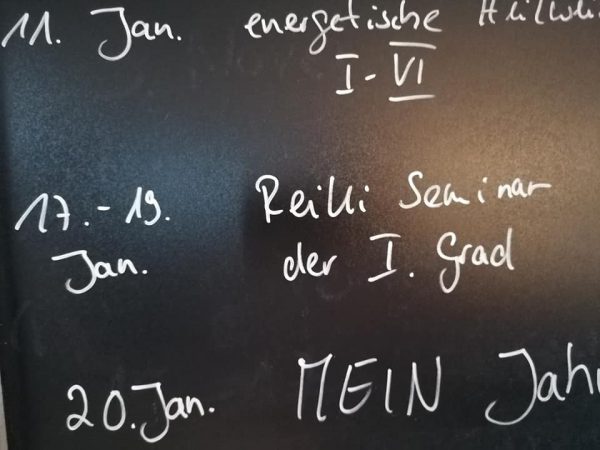 11. Jan. energetische
I - VI
17. - 19. Reiki Seminar
Jan. der I. Grad
20. Jan. MEIN Jah